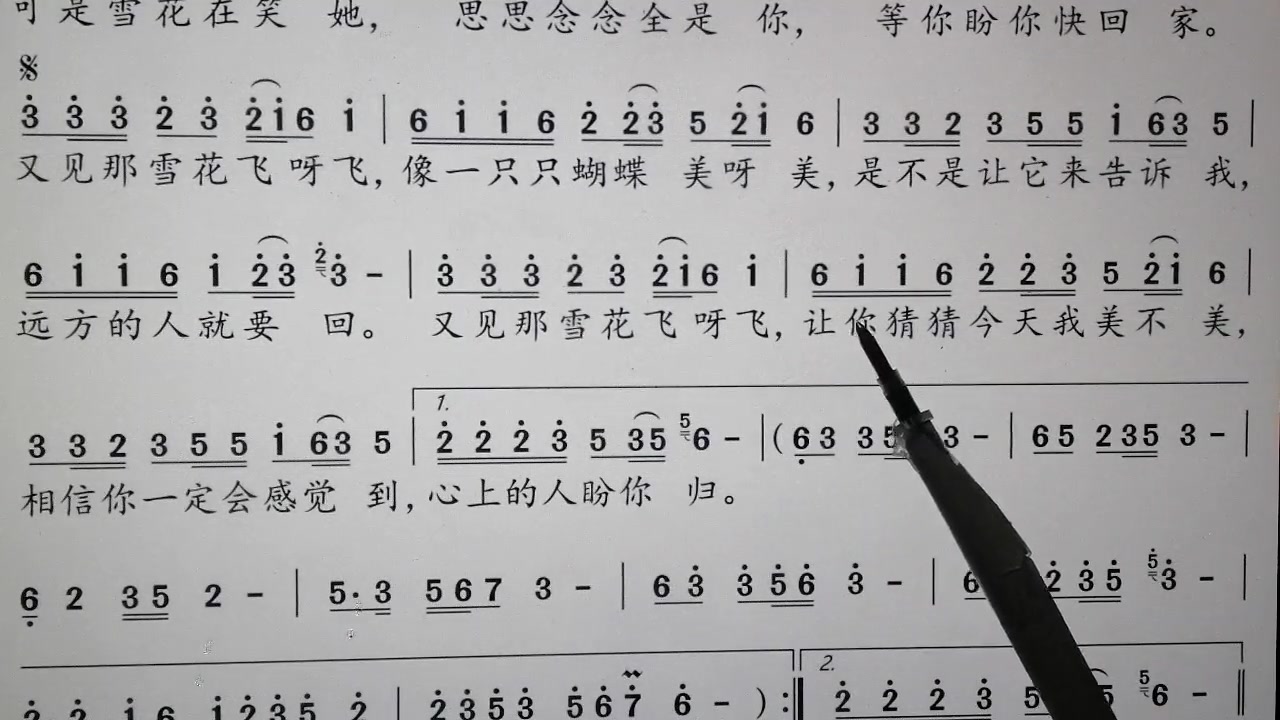 可是雪花在笑 她， 思思念念全是 你， 等你盼你快回 家。
3 3 3 2 3 2 1 6 1 | 6 1 1 6 2 2 3 5 2 1 6 | 3 3 2 3 5 5 1 6 3 5 |
又见那雪花飞呀飞，像一只只蝴蝶 美呀 美，是不是让它来告诉 我，
6 1 1 6 1 2 3 2 3 - | 3 3 3 2 3 2 1 6 1 | 6 1 1 6 2 2 3 5 2 1 6 |
远方的人就要 回。 又见那雪花飞呀飞，让你猜猜今天我美不 美，
1.
3 3 2 3 5 5 1 6 3 5 | 2 2 2 3 5 3 5 5 6 - | ( 6 3 3 5 3 - | 6 5 2 3 5 3 - |
相信你一定会感觉 到，心上的人盼你 归。
6 2 3 5 2 - | 5· 3 5 6 7 3 - | 6 3 3 5 6 3 - | 6 2 3 5 5 3 - |
2.
2 2 1 6 1 2 3 5 2 | 2 3 5 3 5 6 7 6 - ) :|| 2 2 2 3 5 5 5 6 - ||